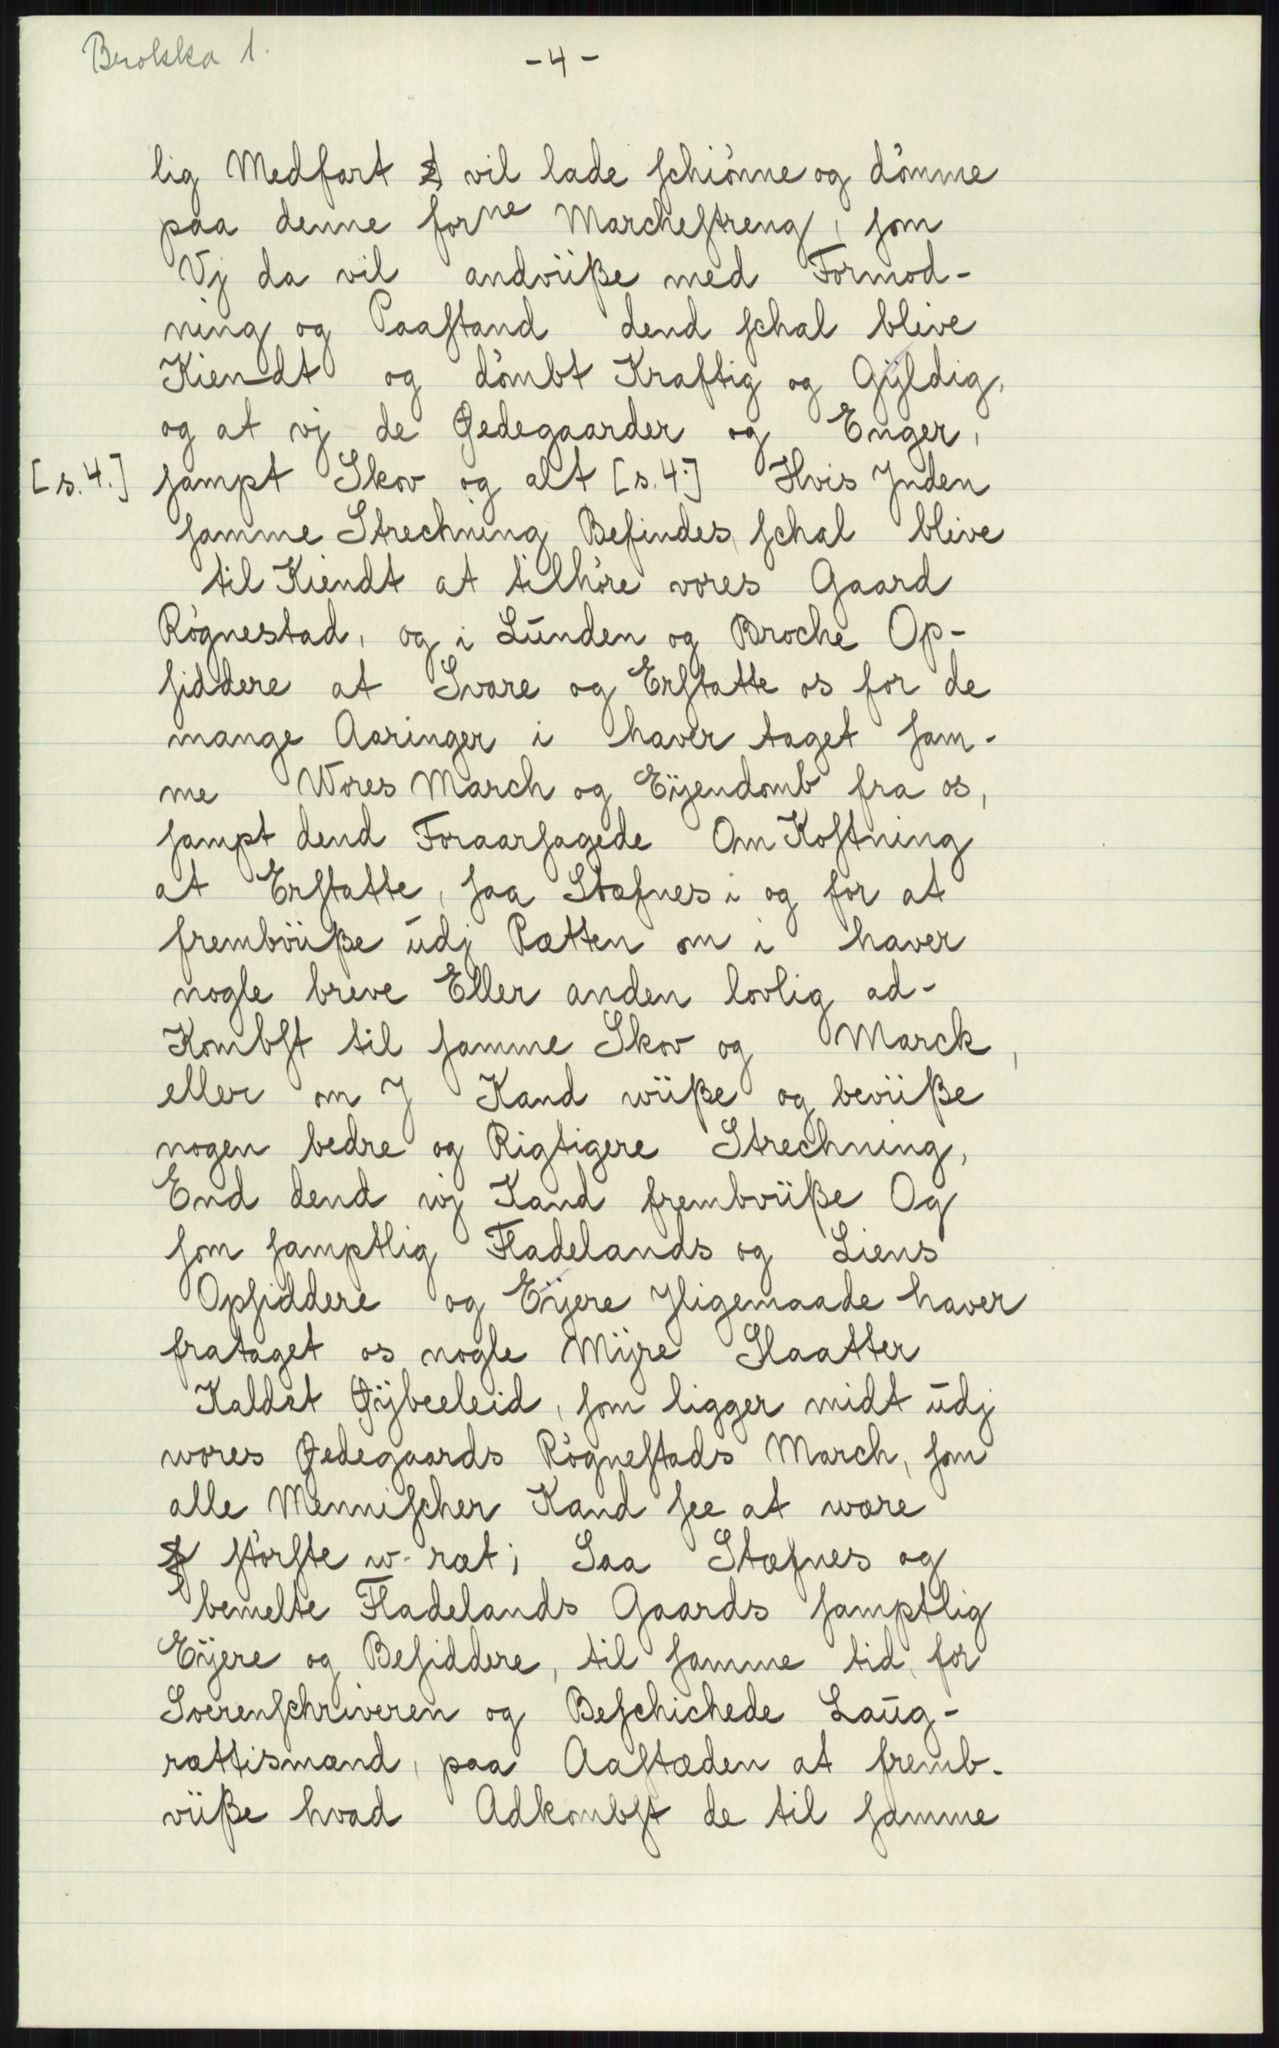 Brokka 1.
- 4 -
lig Medfart vil lade schiønne og dømme
paa denne forne Marchestreng, som
Vj da vil andvüße med Formod-
ning og Paastand dend schal blive
Kiendt og dømbt Kraftig og Gÿldig,
og at vj de Ødegaarder og Enger,
[s. 4.] sampt Skov og alt [s. 4.] Hvis Jnden
samme Strechning Befindes, schal blive
til Kiendt at tilhøre vores Gaard
Røgnestad, og i Lunden og Broche Op-
siddere at Svare og Erstatte os for de
mange Aaringer i haver taget sam-
me Wores March og Eÿendomb fra os,
sampt dend Foraarsagede Om Kostning
at Erstatte, saa Stæfnes i og for at
frembvüße udj Rætten om i haver
nogle breve Eller anden lovlig ad-
Kombst til samme Skov og Marck,
eller om J Kand wüße og bevüße
nogen bedre og Rigtigere Strechning,
End dend wj Kand frembvüße Og
som samptlig Fladelands og Liens
Opsiddere og Eÿere Jligemaade haver
frataget os nogle Mÿre Slaatter
Kaldet Øÿbeeleid, som ligger midt udj
wores Ødegaards Røgnestads March, som
alle Mennischer Kand see at være
største w-ræt; Saa Stæfnes og
bemelte Fladelands Gaards samptlig
Eÿere og Besiddere, til samme tid, for
Soerenschriveren og Beschichede Laug-
rættismænd, paa Aastæden at fremb-
vüße hvad Adkombst de til samme